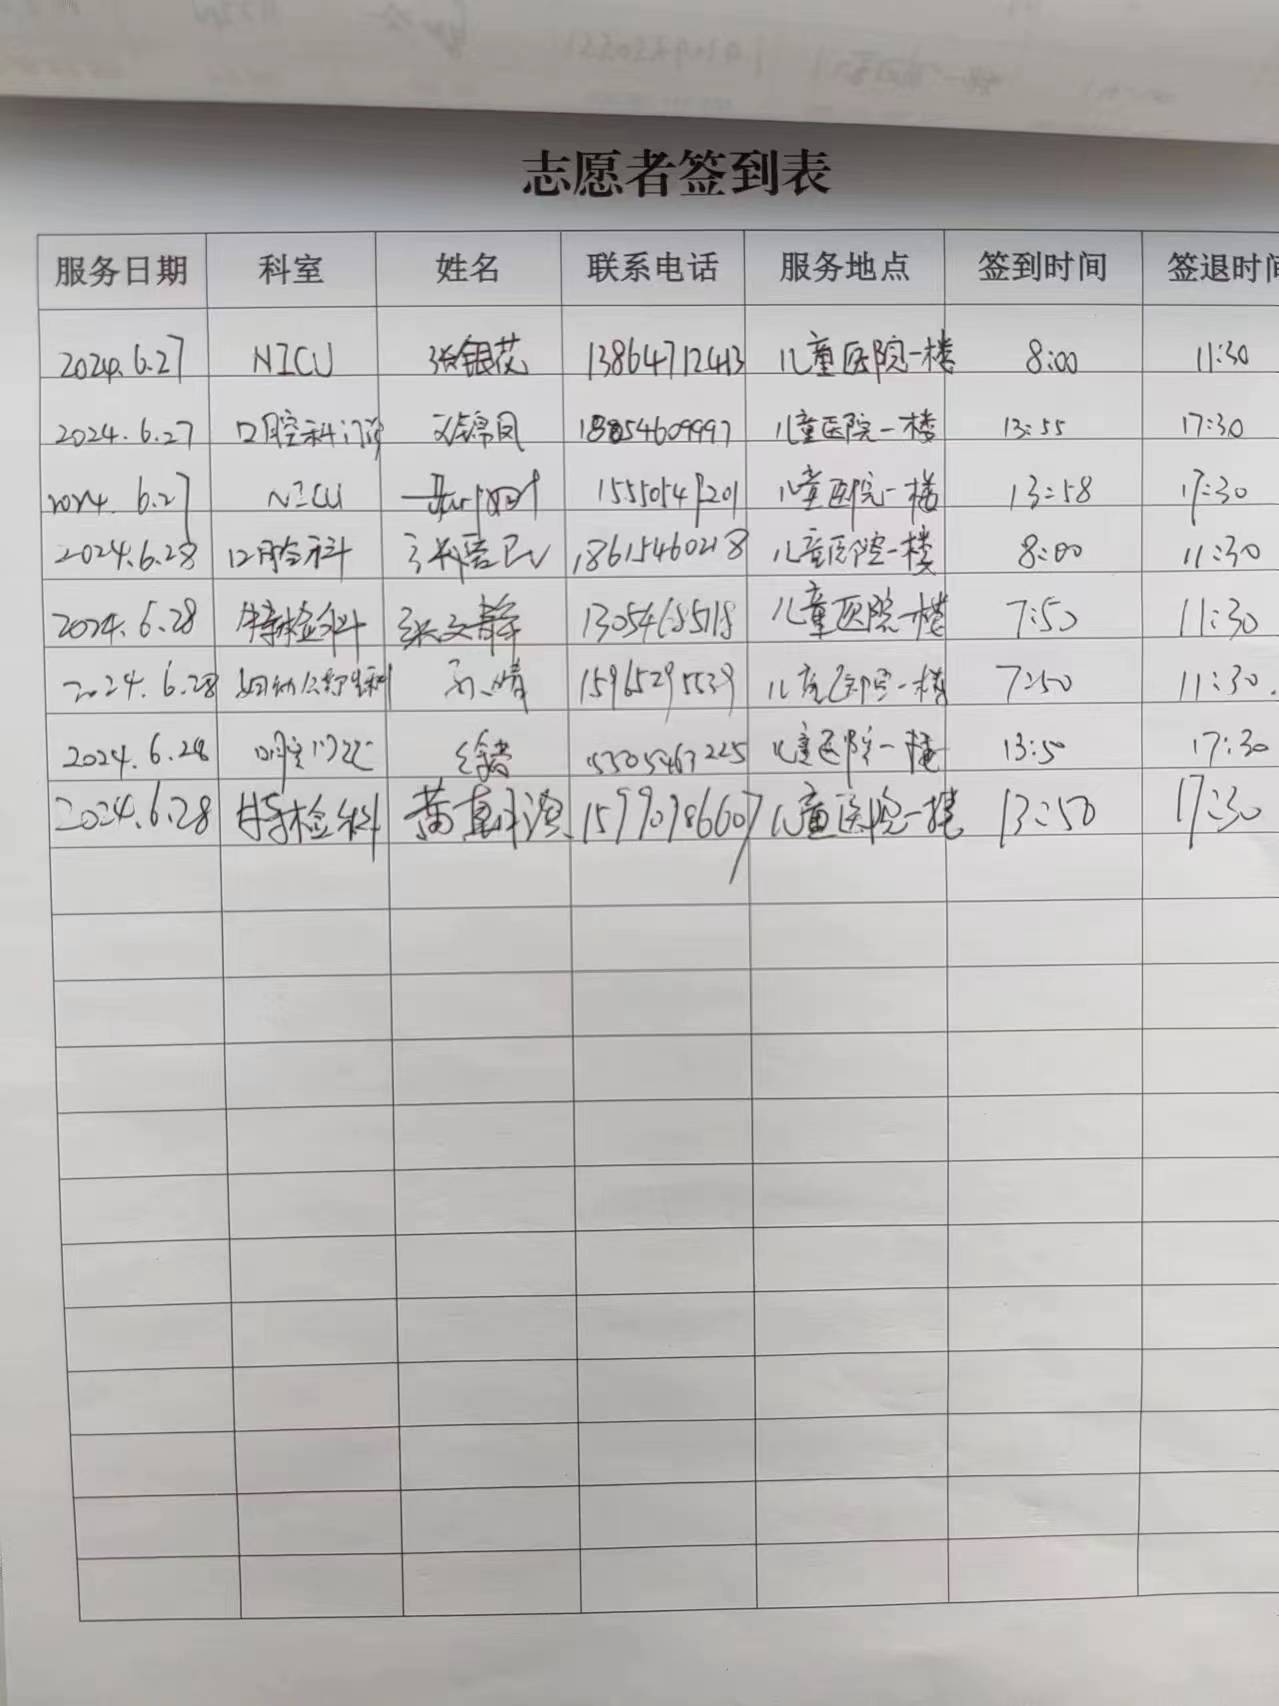 志愿者签到表
服务日期 科室 姓名 联系电话 服务地点 签到时间 签退时间
2024.6.27 NICU 张银花 13864712413 儿童医院一楼 8:00 11:30
2024.6.27 口腔科门诊 刘锦凤 18854609997 儿童医院一楼 13:55 17:30
2024.6.27 NICU 儿童医院一楼 13:58 17:30
2024.6.28 口腔科 18615460218 儿童医院一楼 8:00 11:30
2024.6.28 特检科 张文静 儿童医院一楼 7:50 11:30
2024.6.28 孙晴 15965295539 儿童医院一楼 7:50 11:30.
2024.6.28 儿童医院一楼 13:50 17:30
2024.6.28 特检科 儿童医院一楼 13:50 17:30